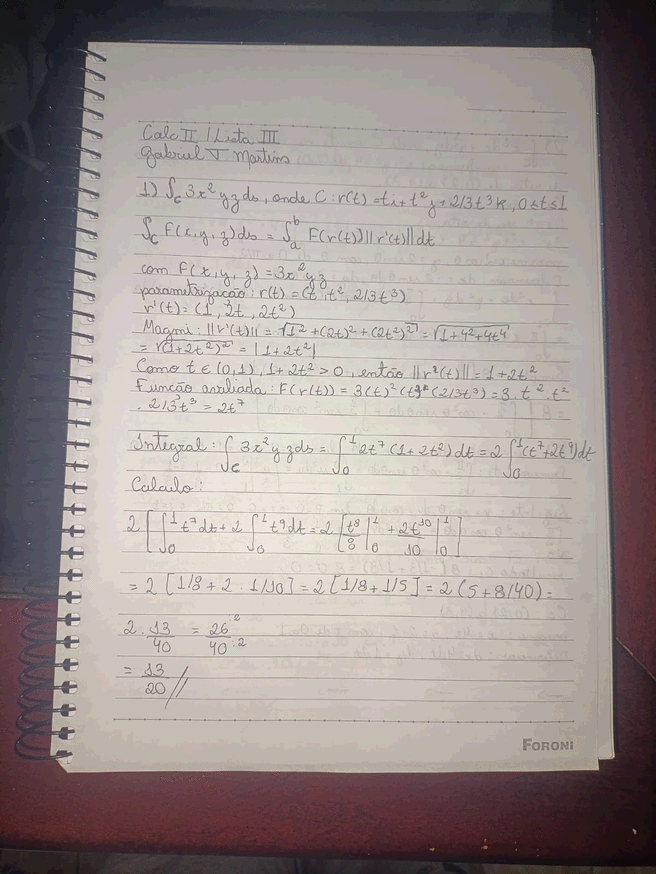 Calc II / Lista III
Gabriel V Martins
1) ∫_C 3x² yz ds, onde C: r(t) = ti + t²j + 2/3t³k, 0 ≤ t ≤ 1
∫_C F(x, y, z) ds = ∫_a^b F(r(t)) ||r'(t)|| dt
com F(x, y, z) = 3x² yz
parametrização: r(t) = (t, t², 2/3t³)
r'(t) = (1, 2t, 2t²)
Magni: ||r'(t)|| = √1² + (2t)² + (2t²)² = √1 + 4² + 4t⁴
= √(1 + 2t²)² = |1 + 2t²|
Como t ∈ (0, 1), 1 + 2t² > 0, então ||r'(t)|| = 1 + 2t²
Função avaliada: F(r(t)) = 3(t)² (2/3t³) = 3 . t² . t²
. 2/3 t³ = 2t⁷
Integral: ∫_C 3x² yz ds = ∫_0^1 2t⁷ (1 + 2t²) dt = 2 ∫_0^1 (t⁷ + 2t⁹) dt
Calculo:
2 [ ∫_0^1 t⁷ dt + 2 ∫_0^1 t⁹ dt = 2 [ t⁸/8 |_0^1 + 2t¹⁰/10 |_0^1 ]
= 2 [1/8 + 2 . 1/10] = 2 [1/8 + 1/5] = 2 (5 + 8/40) =
2 . 13/40 = 26:2/40:2
= 13/20 //
FORONI